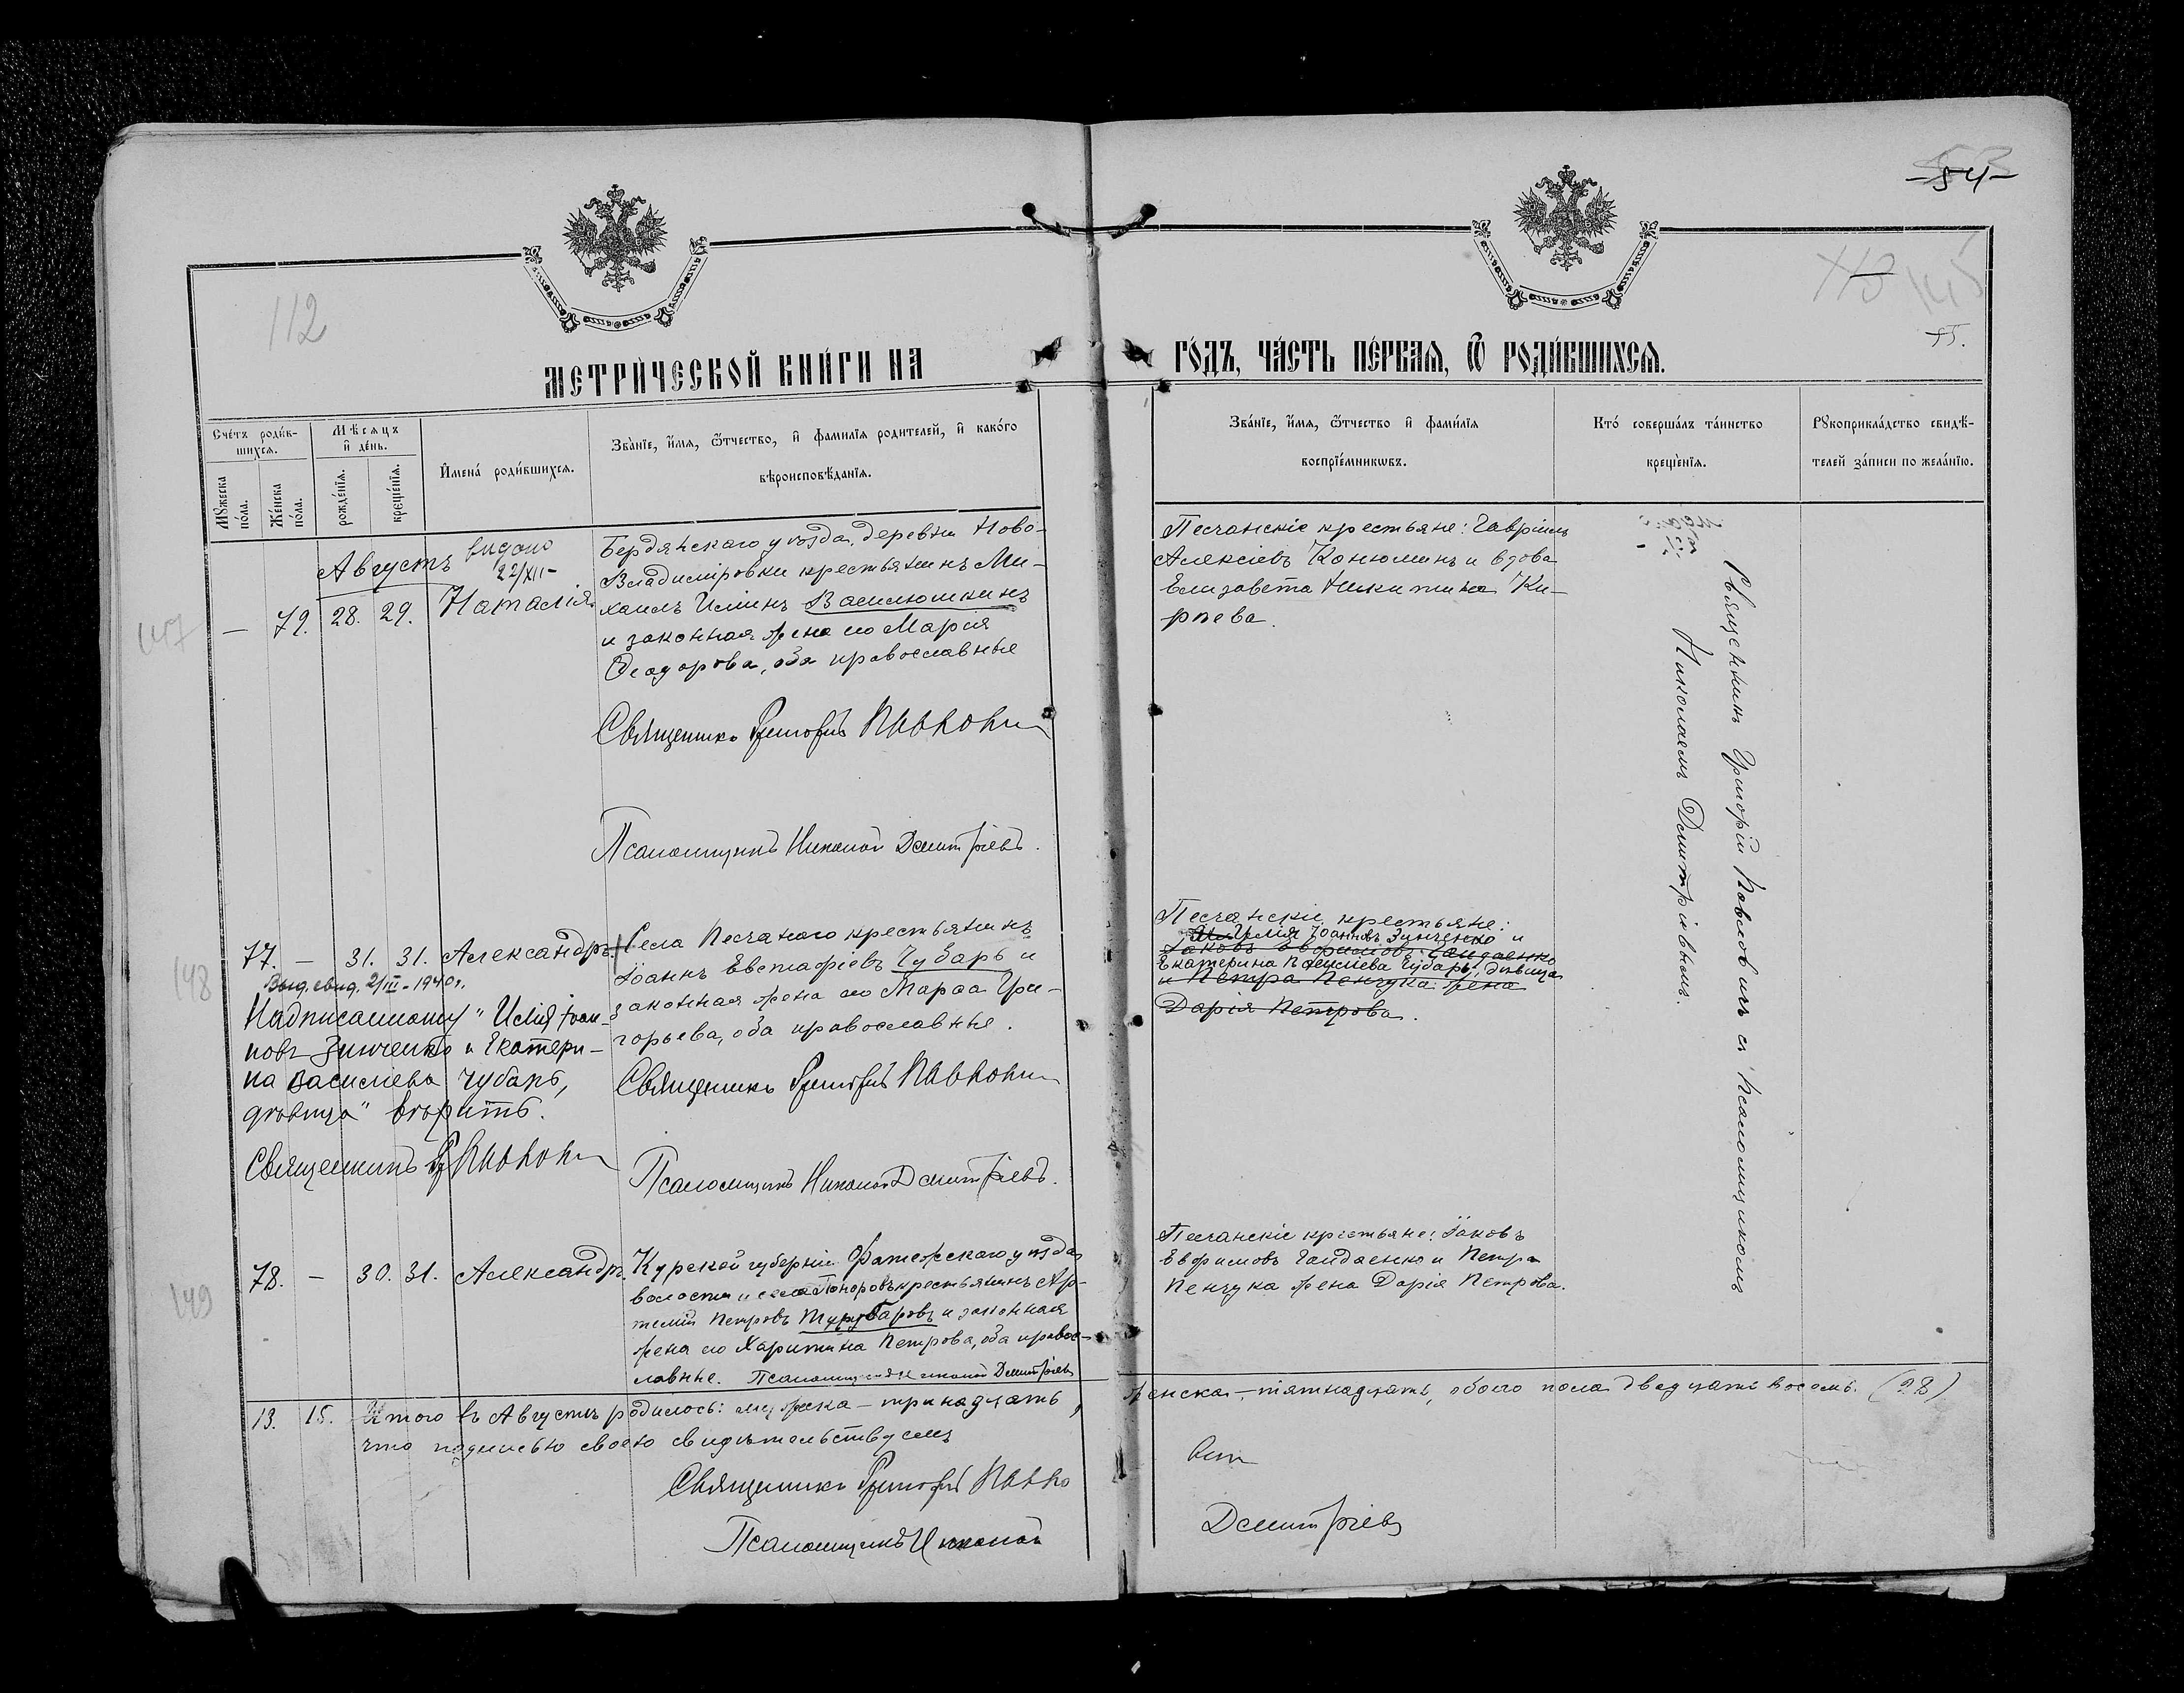 -54-
112
145
95.
МЕТРИ́ЧЕСКОЙ КНИ́ГИ НА
ГО́ДЪ, ЧА́СТЬ ПЕ́РВАѦ, Ѿ РОДИ́ВШИХСѦ.
Сче́тъ роди́в-
шихсѧ.
Мꙋ́жеска по́ла.
Же́нска по́ла.
Мѣсѧцъ и҆ де́нь.
рожде́нїѧ.
креще́нїѧ.
И҆мена̀ роди́вшихсѧ.
Зва́нїе, и҆́мѧ, ѻ҆́тчество, и҆ фами́лїѧ родителей, и҆ како́гѡ
вѣроисповѣ́данїѧ.
Зва́нїе, и҆́мѧ, ѻ҆́тчество и҆ фами́лїѧ
воспрїе́мникѡвъ.
Кто́ соверша́лъ та́инство
креще́нїѧ.
Рꙋкоприкла́дство свидѣ́-
телей за́писи по жела́нїю.
Августъ
видано
22/XII-
147
— 79. 28. 29. Наталія.
Бердянскаго уѣзда, деревни Ново-
Владиміровки крестьянинъ Ми-
хаилъ Ильинъ Василюшкинъ
и законная жена его Марія
Ѳеодорова, оба православные
Священникъ Григорій Павлович
Псаломщикъ Николай Дмитріевъ.
Песчанскіе крестьяне: Гавріилъ
Алексіевъ Конюшинъ и вдова
Елизавета Никитина Ки-
рѣева.
Священникъ Григорій Павловичъ съ псаломщикомъ
Николаемъ Дмитріевымъ.
148
77. — 31. 31. Александръ
Выд. свид. 2/III-1940г.
Надписанному "Илія Іоан-
новъ Зинченко и Екатери-
на Василиева Чубарь,
дѣвица" вѣрить.
Священникъ Гр Павлович
Села Песчанаго крестьянинъ
Іоаннъ Евстафіевъ Чубарь и
законная жена его Марѳа Гри-
горьева, оба православные.
Священникъ Григорій Павлович
Псаломщикъ Николай Дмитріевъ.
Песчанскіе крестьяне:
Илія Іоанновъ Зинченко и
Іаковъ Евфимовъ Гайдаенко
Екатерина Василиева Чубарь, дѣвица
и Петра Пенчука жена
Дарія Петрова.
149
78. — 30. 31. Александръ.
Курской губерніи Фатежскаго уѣзда
волости и села Поноровъ крестьянинъ Ар-
темій Петровъ Турубаровъ и законная
жена его Харитина Петрова, оба правос-
лавные. Псаломщикъ Николай Дмитріевъ
Песчанскіе крестьяне: Іаковъ
Евфимовъ Гайдаенко и Петра
Пенчука жена Дарія Петрова.
13. 15. Итого въ Августѣ родилось: мужеска — тринадцать, женска — пятнадцать, обоего пола двадцать восемь. (28)
что подписью своею свидѣтельствуемъ
Священникъ Григорій Павлович
Псаломщикъ Николай Дмитріевъ